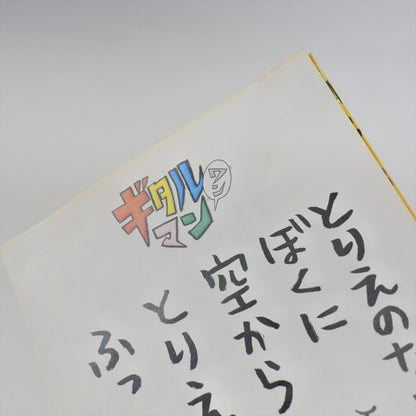 ギタルマン
ワン
とりえのな
ぼくに
空から
とりえ
ふっ